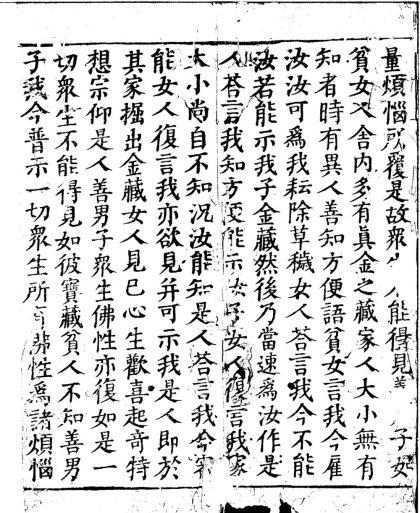 量煩惱所覆是故衆能得見子
貧女人舍內多有真金之藏家人大小無有
知者時有異人善知方便語貧女言我今雇
汝汝可爲我耘除草穢女人荅言我今不能
汝若能示我子金藏然後乃當速爲汝作是
人荅言我知方便能示汝子女人復言我家
大小尚自不知況汝能知是人荅言我今審
能女人復言我亦欲見并可示我是人即於
其家掘出金藏女人見已心生歡喜起奇特
想宗仰是人善男子衆生佛性亦復如是一
切衆生不能得見如彼寶藏貧人不知善男
子我今普示一切衆生所有性爲諸煩惱